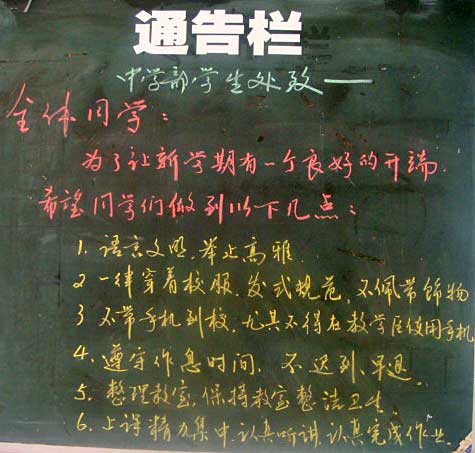 通告栏
中学部学生处致——
全体同学：
为了让新学期有一个良好的开端.
希望同学们做到以下几点：
1. 语言文明，举止高雅.
2 一律穿着校服，发式规范，不佩带饰物
3 不带手机到校，尤其不得在教学区使用手机
4. 遵守作息时间，不迟到、早退.
5. 整理教室，保持教室整洁卫生
6. 上课精力集中，认真听讲，认真完成作业.